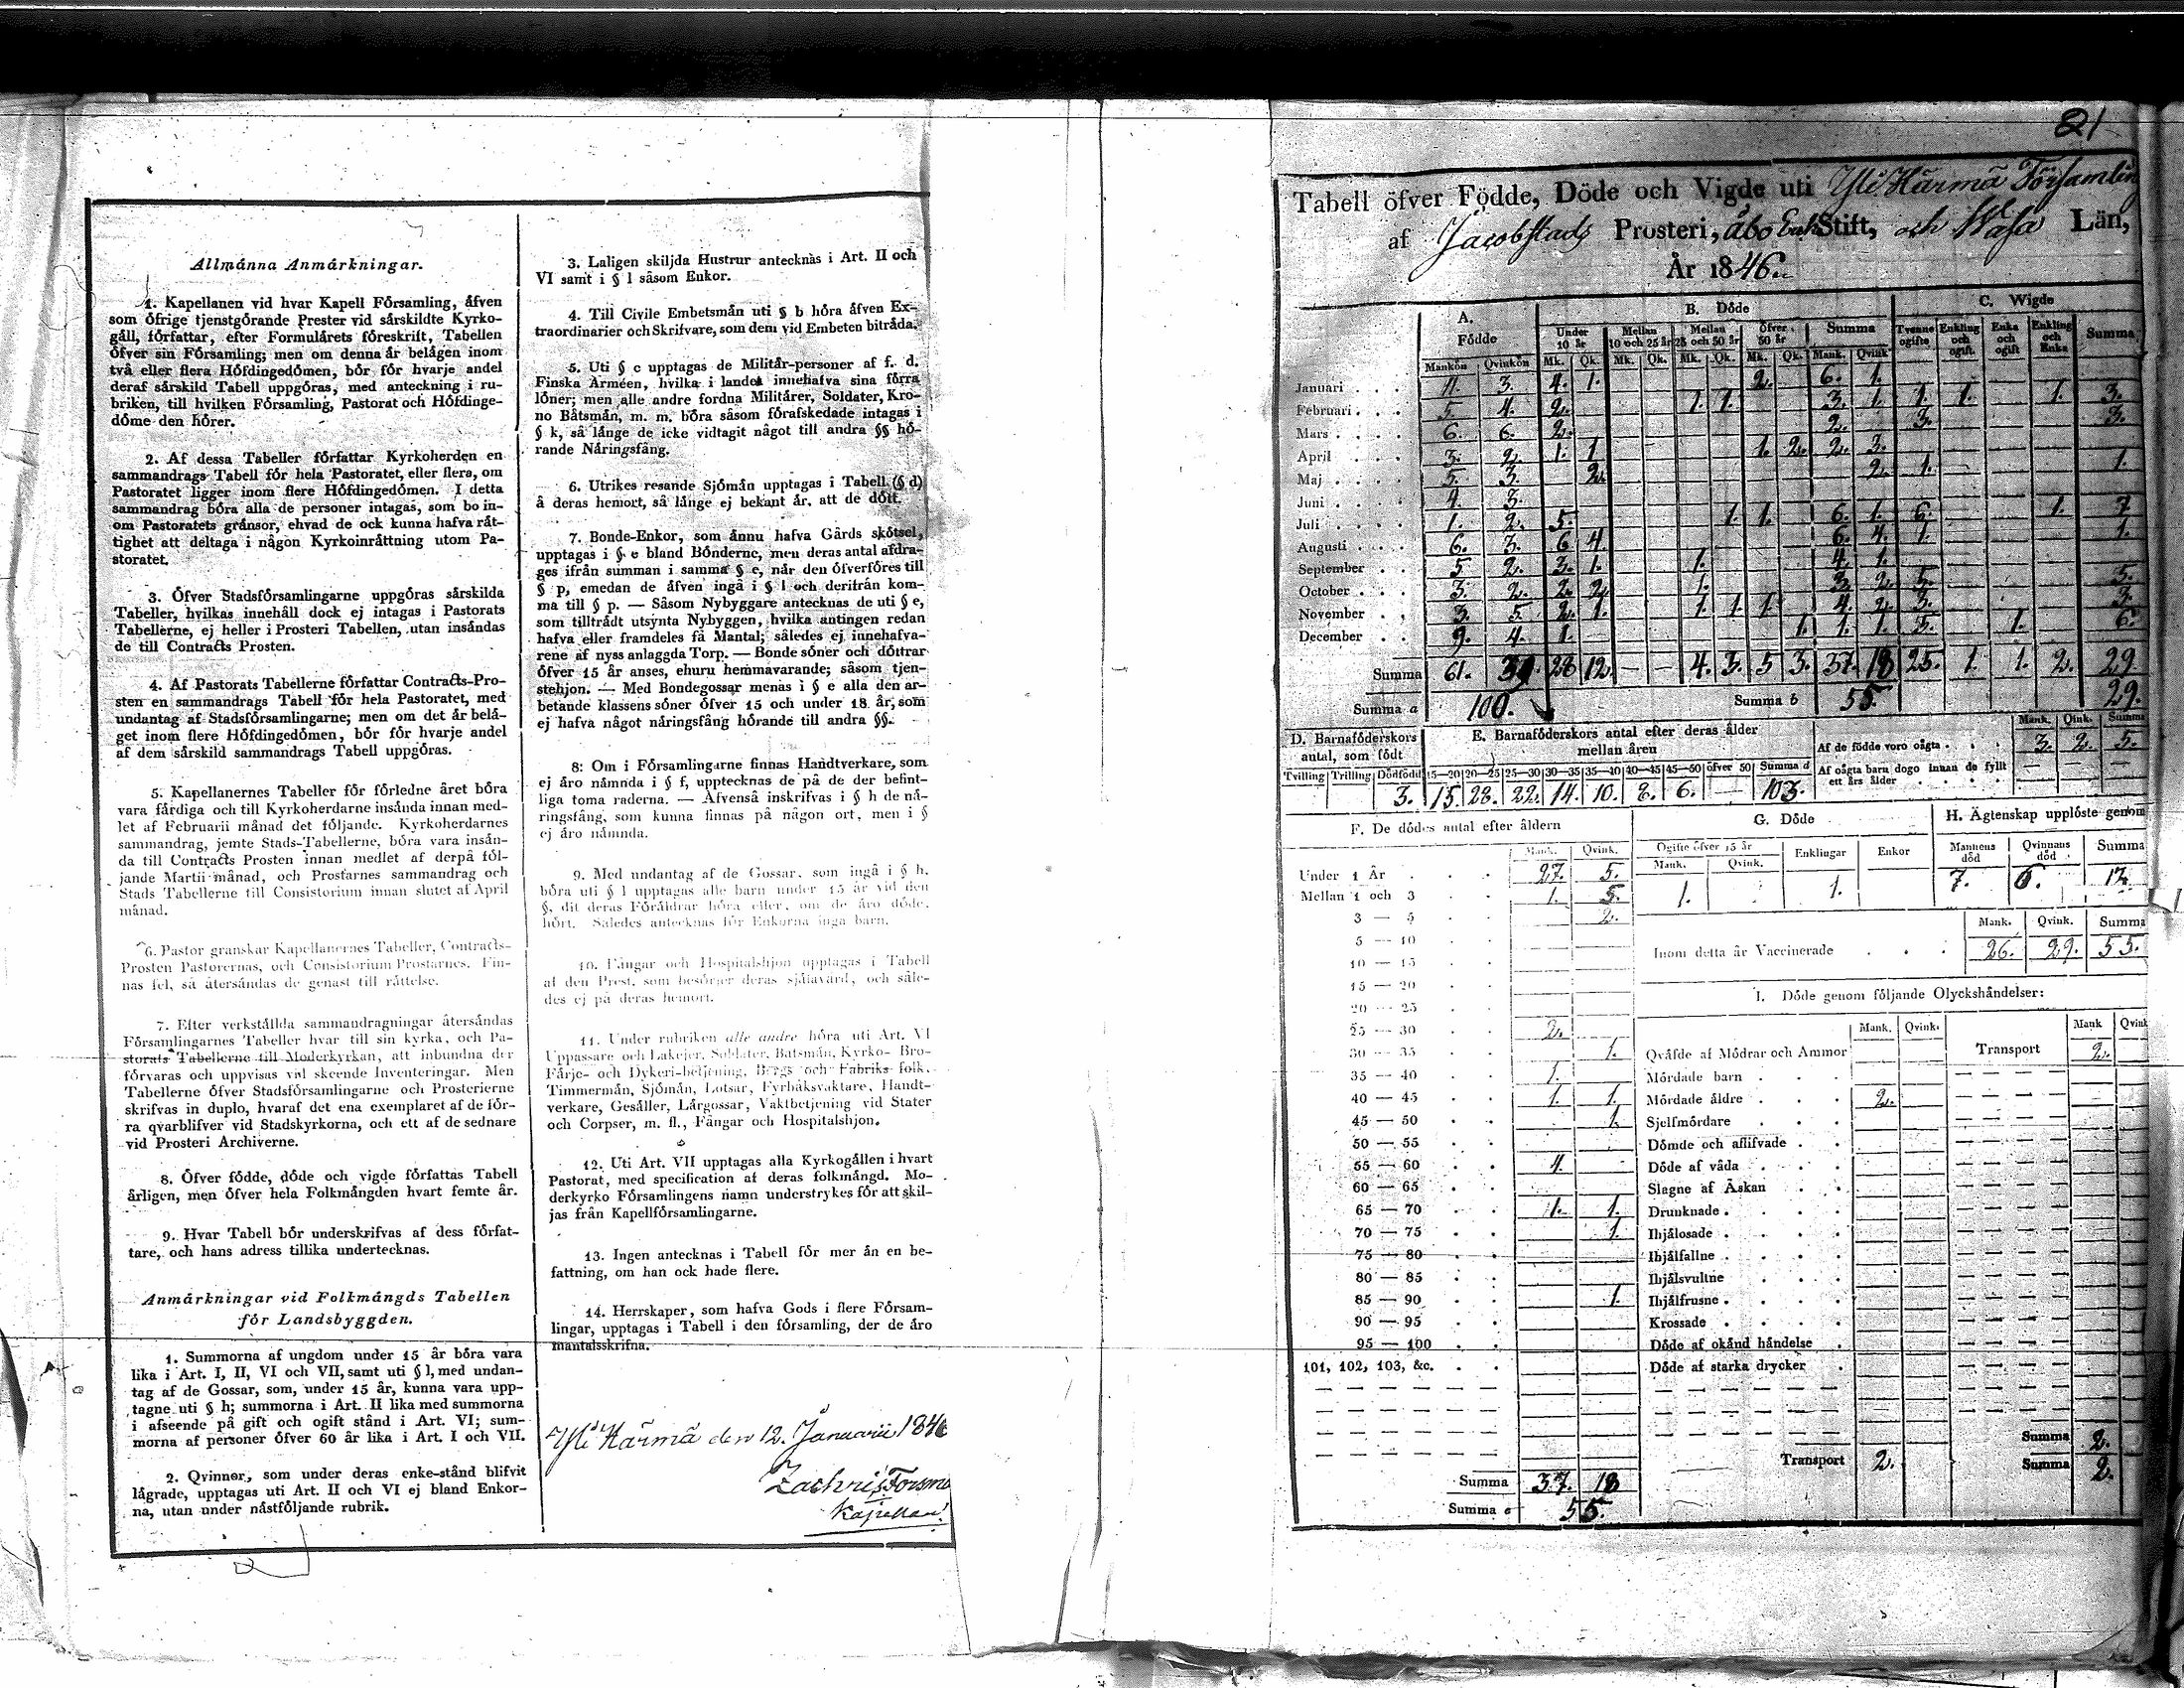 Allmánna Anmárkningar.
1. Kapellanen vid hvar Kapell Fórsamling, áfven
som ófrige tjenstgórande Prester vid sárskildte Kyrko-
gáll, fórfattar, efter Formulárets fóreskrift, Tabellen
ófver sin Fórsamling; men om denna ár belágen inom
två eller flera Hófdingedómen, bór fór hvarje andel
deraf sárskild Tabell uppgóras, med anteckning i ru-
briken, till hvilken Fórsamling, Pastorat och Hófdinge-
dóme den hórer.
2. Af dessa Tabeller fórfattar Kyrkoherden en
sammandrags Tabell fór hela Pastoratet, eller flera, om
Pastoratet ligger inom flere Hófdingedómen. I detta
sammandrag bóra alla de personer intagas, som bo in-
om Pastoratets gránsor, ehvad de ock kunna hafva rát-
tighet att deltaga i någon Kyrkoinráttning utom Pa-
storatet.
3. Öfver Stadsfórsamlingarne uppgóras sárskilda
Tabeller, hvilkas innehåll dock ej intagas i Pastorats
Tabellerne, ej heller i Prosteri Tabellen, utan insándas
de till Contracts Prosten.
4. Af Pastorats Tabellerne fórfattar Contracts-Pro-
sten en sammandrags Tabell fór hela Pastoratet, med
undantag af Stadsfórsamlingarne; men om det ár belá-
get inom flere Hófdingedómen, bór fór hvarje andel
af dem sárskild sammandrags Tabell uppgóras.
5. Kapellanernes Tabeller fór fórledne året bóra
vara fárdiga och till Kyrkoherdarne insánda innan med-
let af Februarii månad det fóljande. Kyrkoherdarnes
sammandrag, jemte Stads-Tabellerne, bóra vara insán-
da till Contracts Prosten innan medlet af derpå fól-
jande Martii månad, och Prostarnes sammandrag och
Stads Tabellerne till Consistorium innan slutet af April
månad.
6. Pastor granskar Kapellanernes Tabeller, Contracts-
Prosten Pastorernas, och Consistorium Prostarnes. Fin-
nas fel, så återsándas de genast till ráttelse.
7. Efter verkstállda sammandragningar återsándas
Fórsamlingarnes Tabeller hvar till sin kyrka, och Pa-
storats Tabellerne till Moderkyrkan, att inbundna der
fórvaras och uppvisas vid skeende Inventeringar. Men
Tabellerne ófver Stadsfórsamlingarne och Prosterierne
skrifvas in duplo, hvaraf det ena exemplaret af de fór-
ra qvarblifver vid Stadskyrkorna, och ett af de sednare
vid Prosteri Archiverne.
8. Öfver fódde, dóde och vigde fórfattas Tabell
årligen, men ófver hela Folkmángden hvart femte år.
9. Hvar Tabell bór underskrifvas af dess fórfat-
tare, och hans adress tillika undertecknas.
Anmárkningar vid Folkmángds Tabellen
fór Landsbyggden.
1. Summorna af ungdom under 15 år bóra vara
lika i Art. I, II, VI och VII, samt uti § l, med undan-
tag af de Gossar, som, under 15 år, kunna vara upp-
tagne uti § h; summorna i Art. II lika med summorna
i afseende på gift och ogift stånd i Art. VI; sum-
morna af personer ófver 60 år lika i Art. I och VII.
2. Qvinnor, som under deras enke-stånd blifvit
lágrade, upptagas uti Art. II och VI ej bland Enkor-
na, utan under nástfóljande rubrik.
3. Laligen skiljda Hustrur antecknas i Art. II och
VI samt i § l såsom Enkor.
4. Till Civile Embetsmán uti § b hóra áfven Ex-
traordinarier och Skrifvare, som dem vid Embeten bitráda.
5. Uti § c upptagas de Militår-personer af f. d.
Finska Arméen, hvilka i landet innehafva sina fórra
lóner; men alle andre fordna Militárer, Soldater, Kro-
no Båtsmán, m. m. bóra såsom fórafskedade intagas i
§ k, så lánge de icke vidtagit något till andra §§ hó-
rande Náringsfång.
6. Utrikes resande Sjómán upptagas i Tabell (§ d)
å deras hemort, så lánge ej bekant ár, att de dótt.
7. Bonde-Enkor, som ánnu hafva Gårds skótsel,
upptagas i § e bland Bónderne, men deras antal afdra-
ges ifrån summan i samma § e, nár den ófverfóres till
§ p, emedan de áfven ingå i § l och derifrån kom-
ma till § p. — Såsom Nybyggare antecknas de uti § e,
som tilltrádt utsynta Nybyggen, hvilka antingen redan
hafva eller framdeles få Mantal; således ej innehafva-
rene af nyss anlaggda Torp. — Bonde sóner och dóttrar
ófver 15 år anses, ehuru hemmavarande; såsom tjen-
stehjon. — Med Bondegossar menas i § e alla den ar-
betande klassens sóner ófver 15 och under 18 år, som
ej hafva något náringsfång hórande till andra §§.
8: Om i Fórsamlingarne finnas Handtverkare, som
ej áro námnda i § f, upptecknas de på de der befint-
liga toma raderna. — Afvenså inskrifvas i § h de ná-
ringsfång, som kunna finnas på någon ort, men i §
ej áro námnda.
9. Med undantag af de Gossar, som ingå i § h,
bóra uti § l upptagas alle barn under 15 år vid den
§, dit deras Fóráldrar hóra eller, om de áro dóde,
hórt. Således antecknas fór Enkorna inga barn.
10. Fångar och Hospitalshjon upptagas i Tabell
af den Prest, som besórjer deras sjálavård, och såle-
des ej på deras hemort.
11. Under rubriken alle andre hóra uti Art. VI
Uppassare och Lakejer, Soldater, Båtsmán, Kyrko- Bro-
Fárje- och Dykeri-betjening, Bergs och Fabriks folk,
Timmermán, Sjómán, Lotsar, Fyrbåksvaktare, Handt-
verkare, Gesáller, Lárgossar, Vaktbetjening vid Stater
och Corpser, m. fl., Fångar och Hospitalshjon.
12. Uti Art. VII upptagas alla Kyrkogállen i hvart
Pastorat, med specification af deras folkmángd. Mo-
derkyrko Fórsamlingens namn understrykes fór att skil-
jas från Kapellfórsamlingarne.
13. Ingen antecknas i Tabell fór mer án en be-
fattning, om han ock hade flere.
14. Herrskaper, som hafva Gods i flere Fórsam-
lingar, upptagas i Tabell i den fórsamling, der de áro
mantalsskrifna.
Ylihärmä den 12. Januarii 184
Zachris Forsma
Kapellan.
21
Tabell öfver Födde, Döde och Vigde uti Yli Härmä Församling
af Jacobstads Prosteri, Åbo Erk Stift, och Wasa Län,
År 1846.
A. Födde B. Dóde C. Wigde
Under 10 år Mellan 10 och 25 år Mellan 25 och 50 år Öfver 50 år Summa Tvenne ogifte Enkling och ogift Enka och ogift Enkling och Enka Summa
Mankön Qvinkön Mk. Qk. Mk. Qk. Mk. Qk. Mk. Qk. Mank. Qvink
Januari 11. 3. 4. 1. 2. 6. 1.
Februari 5. 4. 2. 1. 1. 3. 1. 1. 1. 1. 3.
Mars 6. 6. 2. 2. 3. 3.
April 3. 2. 1. 1 1. 2. 2. 3.
Maj 5. 3. 2. 2. 1. 1.
Juni 4. 3.
Juli 1. 2. 5. 1. 1. 6. 1. 6. 1. 7
Augusti 6. 3. 6 4. 6. 4. 1. 1.
September 5 2. 3. 1. 1. 4. 1.
October 3. 2. 2. 2. 1. 3. 2. 5. 5.
November 3. 5. 2. 1. 1. 1. 1. 4. 2. 3. 3.
December 9. 4. 1. 1. 1. 1. 5. 1. 6.
Summa 61. 39 28 12. — — 4. 3. 5 3. 37. 18 25. 1. 1. 2. 29
Summa a 100. Summa b 55. 29.
D. Barnafóderskors antal, som fódt
E. Barnafóderskors antal efter deras ålder mellan åren
Tvilling Trilling Dódfódd 15—20 20—25 25—30 30—35 35—40 40—45 45—50 ófver 50 Summa d
3. 15. 28. 22. 14. 10. 8. 6. — 103.
Mank. Qink. Summa
Af de fódde voro oágta 3. 2. 5.
Af oágta barn dogo innan de fyllt
ett års ålder — — —
F. De dódes antal efter åldern
Mank. Qvink.
Under 1 År 27. 5.
Mellan 1 och 3 1. 5.
3 — 5 2.
5 — 10
10 — 15
15 — 20
20 — 25
25 — 30 2.
30 — 35 1.
35 — 40 1.
40 — 45 1. 1.
45 — 50 1.
50 — 55
55 — 60 4.
60 — 65
65 — 70 1. 1.
70 — 75 1.
75 — 80
80 — 85
85 — 90 1.
90 — 95
95 — 100
101, 102, 103, &c.
Summa 37. 18
Summa 55.
G. Dóde
Ogifte ófver 15 år Enklingar Enkor
Mank. Qvink.
1. 1.
H. Ägtenskap upplóste genom
Mannens dód Qvinnans dód Summa
7. 12.
Mank. Qvink. Summa
Inom detta år Vaccinerade 26. 29. 55.
I. Dóde genom fóljande Olyckshåndelser:
Mank. Qvink. Mank Qvink
Qváfde af Módrar och Ammor Transport 2.
Mórdade barn
Mórdade áldre 2.
Sjelfmórdare
Dómde och aflifvade
Dóde af våda
Slagne af Åskan
Drunknade
Ihjálosade
Ihjálfallne
Ihjálsvultne
Ihjálfrusne
Krossade
Dóde af okánd hándelse
Dóde af starka drycker
Summa 2.
Transport 2. Summa 2.